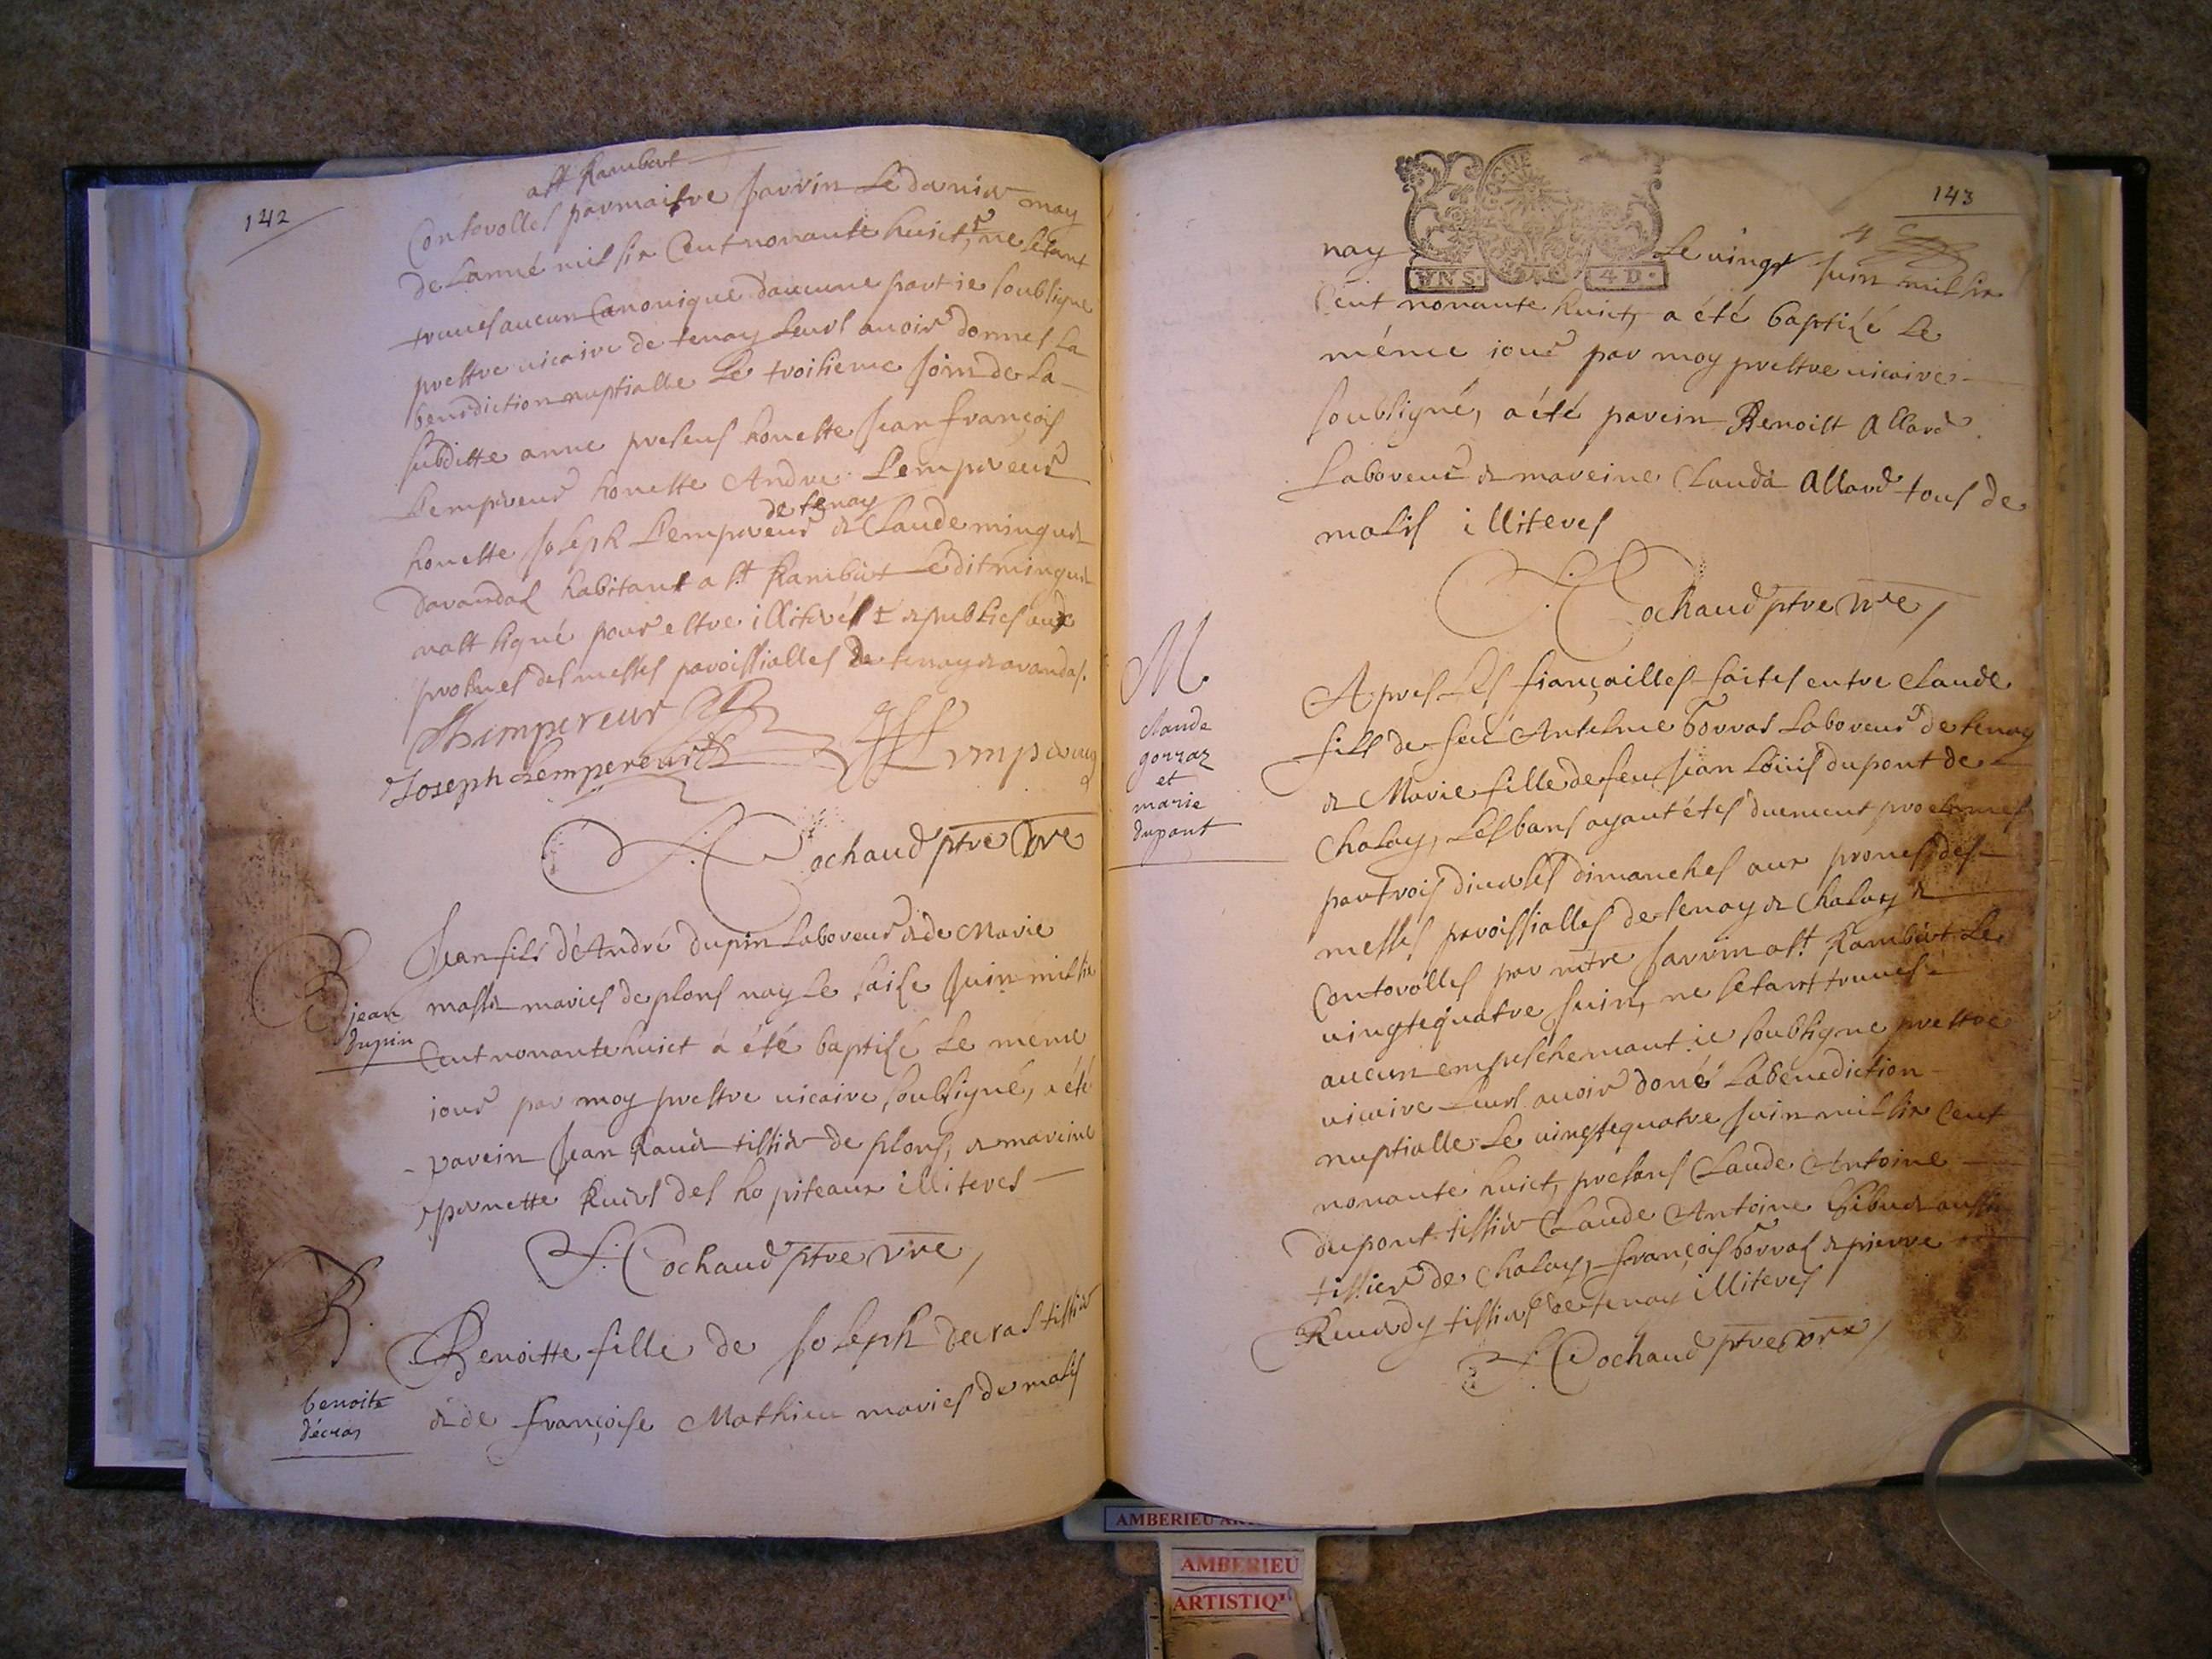 142
a st Rambert
Controlles par maitre Jarrin Le dernier may
de L'anné mil six Cent nonante huict, ne sétant
trouué aucun Canonique daucune part ie soubsigne
prestre uicaire de tenay Leurs auoir donnés La
benediction nuptialle Le troisieme Join de La
subditte anne presens honeste Jean françois
Lempereur honeste Andre Lempereur
de tenay
honeste Joseph Lempereur & Claude minguet
darandas habitant a st Rambert Le dit minguet
na st signé pour estre illiterés & publies aux
prosnes des messes paroissialles de tenay & arandas.
Lhempereur
Joseph Lempereur
Lempereur
F. Cochaud ptre vre
B
jean
dupin
Jean fils d'André dupin Laboreur & de Marie
masson maries de plons nay Le saise Juin mil six
Cent nonante huict a été baptisé Le méme
iour par moy prestre uicaire soubsigné, a été
parein Jean Raud tissier de plons, & mareine
pernette Ruiers des hopiteaux illiteres
F. Cochaud ptre vre
B.
benoite
décras
Benoitte fille de Joseph decras tissier
& de françoise Mathieu maries de malis
143
nay Le uingt Juin mil six
GENE
UN S. 4 D.
Cent nonante huict, a été baptizé Le
méme iour par moy prestre uicaire
soubsigné, a été parein Benoist Allard
Laboreur & mareine Clauda Allard tous de
malis illiteres
F. Cochaud ptre vre
M.
claude
gorraz
et
marie
dupont
Apres Les fiançailles faites entre Claude
fils de feu Antelme Gorras Laboreur de tenay
& Marie fille de feu Jean Louis dupont de
Chaley, Les bans ayant étés duement proclamés
par trois diuerses dimanches aux prones des
messes paroissialles de tenay & Chaley &
Controlles par mtre Jarrin a st. Rambert Le
uingtequatre Juin, ne setant trouué
aucun empeschemant ie soubsigne prestre
uicaire Leurs auoir doné La benediction
nuptialle Le uingtequatre Juin mil six Cent
nonante huict, presens Claude Antoine
dupont tissier Claude Antoine aussi
tissier de Chaley, françois Gorras & pierre
tissiers de tenay illiteres
F. Cochaud ptre vre
AMBERIEU
AMBERIEU
ARTISTIQU